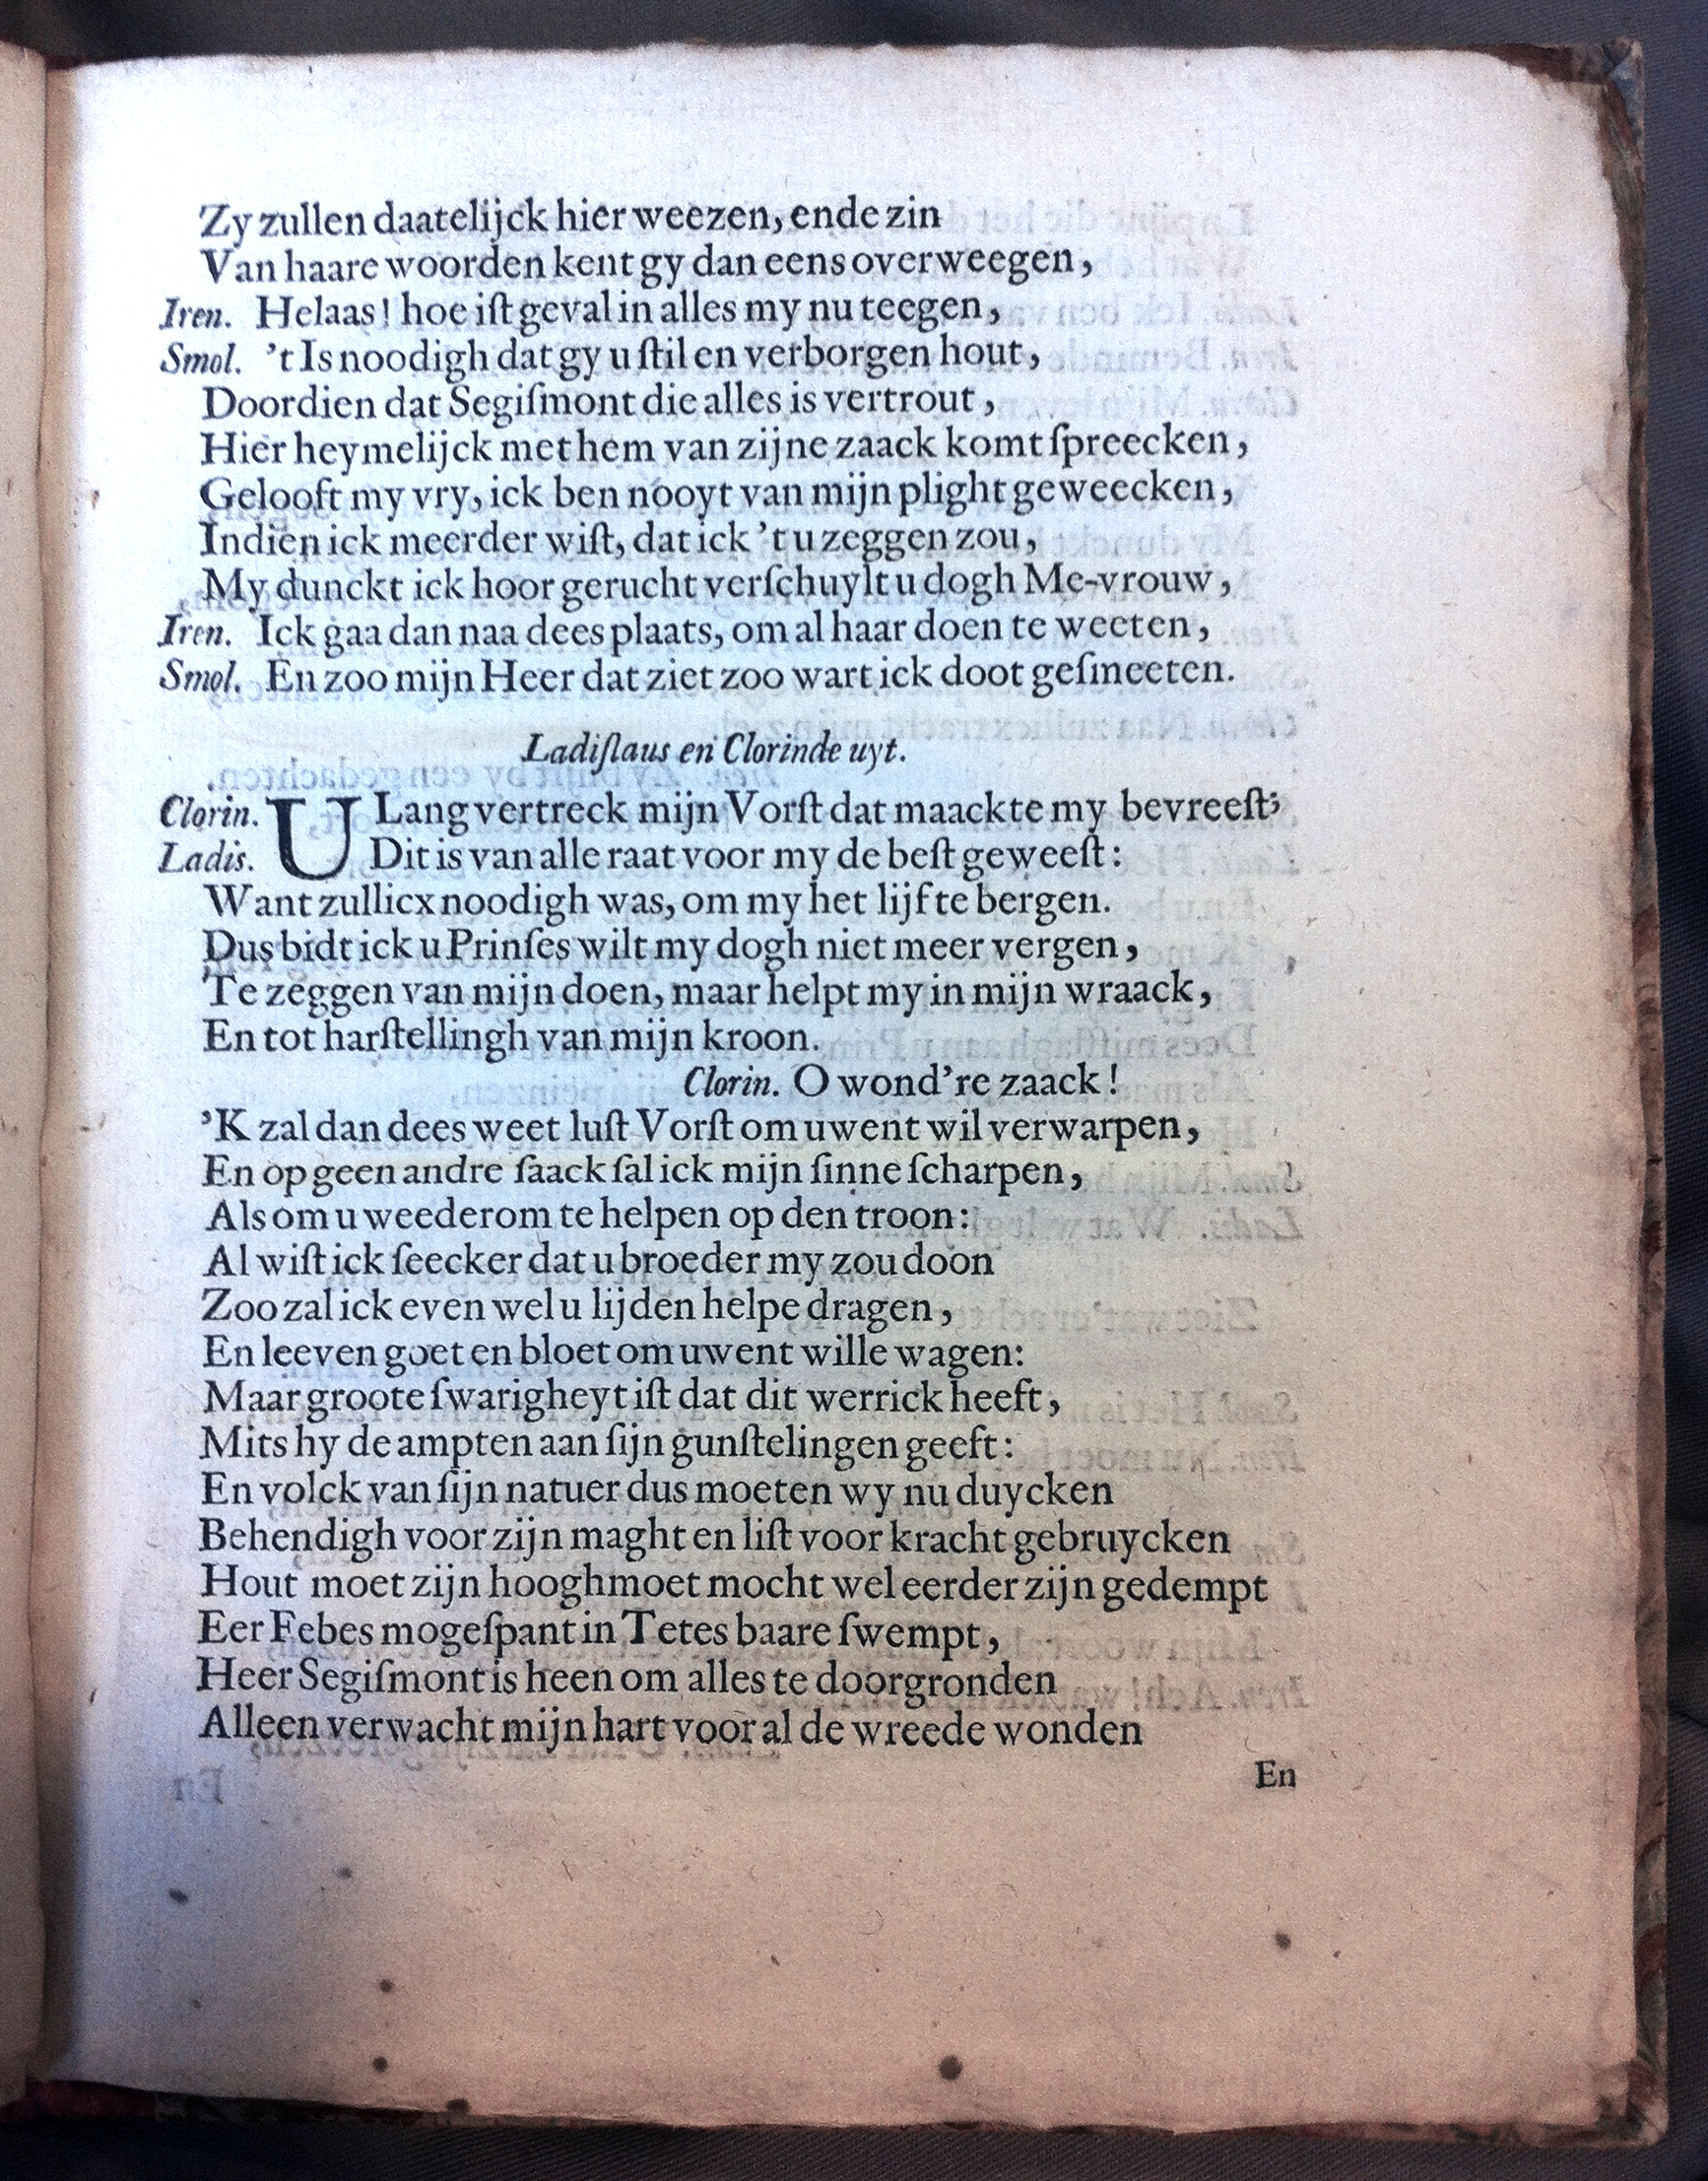 Zy zullen daatelijck hier weezen, ende zin
Van haare woorden kent gy dan eens overweegen,
Iren. Helaas! hoe iſt geval in alles my nu teegen,
Smol. 't Is noodigh dat gy u ſtil en verborgen hout,
Doordien dat Segiſmont die alles is vertrout,
Hier heymelijck met hem van zijne zaack komt ſpreecken,
Gelooft my vry, ick ben nooyt van mijn plight geweecken,
Indien ick meerder wiſt, dat ick 't u zeggen zou,
My dunckt ick hoor gerucht verſchuylt u dogh Me-vrouw,
Iren. Ick gaa dan naa dees plaats, om al haar doen te weeten,
Smol. En zoo mijn Heer dat ziet zoo wart ick doot geſmeeten.
Ladiſlaus en Clorinde uyt.
Clorin. U Lang vertreck mijn Vorſt dat maackte my bevreeſt;
Ladis. Dit is van alle raat voor my de beſt geweeſt:
Want zullicx noodigh was, om my het lijf te bergen.
Dus bidt ick u Prinſes wilt my dogh niet meer vergen,
Te zeggen van mijn doen, maar helpt my in mijn wraack,
En tot harſtellingh van mijn kroon.
Clorin. O wond're zaack!
'K zal dan dees weet luſt Vorſt om uwent wil verwarpen,
En op geen andre ſaack ſal ick mijn ſinne ſcharpen,
Als om u weederom te helpen op den troon:
Al wiſt ick ſeecker dat u broeder my zou doon
Zoo zal ick even wel u lijden helpe dragen,
En leeven goet en bloet om uwent wille wagen:
Maar groote ſwarigheyt iſt dat dit werrick heeft,
Mits hy de ampten aan ſijn gunſtelingen geeft:
En volck van ſijn natuer dus moeten wy nu duycken
Behendigh voor zijn maght en liſt voor kracht gebruycken
Hout moet zijn hooghmoet mocht wel eerder zijn gedempt
Eer Febes mogeſpant in Tetes baare ſwempt,
Heer Segiſmont is heen om alles te doorgronden
Alleen verwacht mijn hart voor al de wreede wonden
En